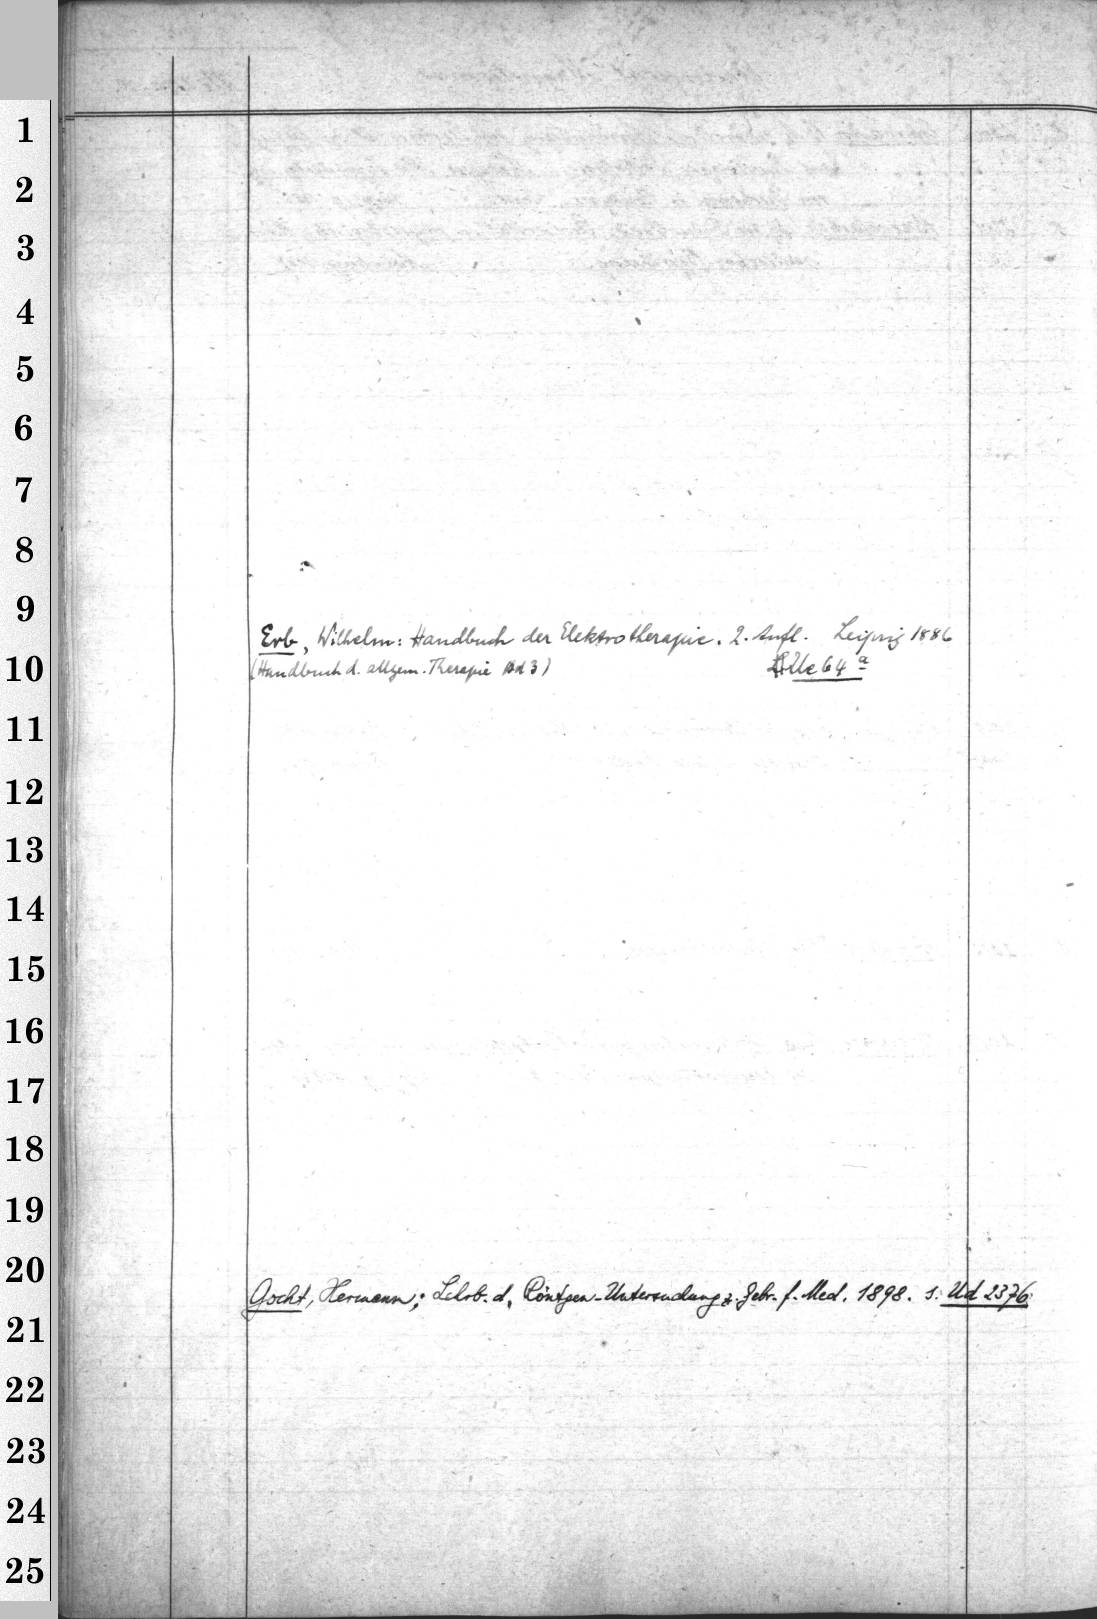 1
2
3
4
5
6
7
8
9
Erb, Wilhelm: Handbuch der Elektrotherapie. 2. Aufl. Leipzig 1886
10
(Handbuch d. allgem. Therapie Bd 3) Ue 64 a
11
12
13
14
15
16
17
18
19
20
Gocht, Hermann; Lehrb. d. Röntgen-Untersuchung z. Gebr. f. Med. 1898. s. Ud 2376
21
22
23
24
25